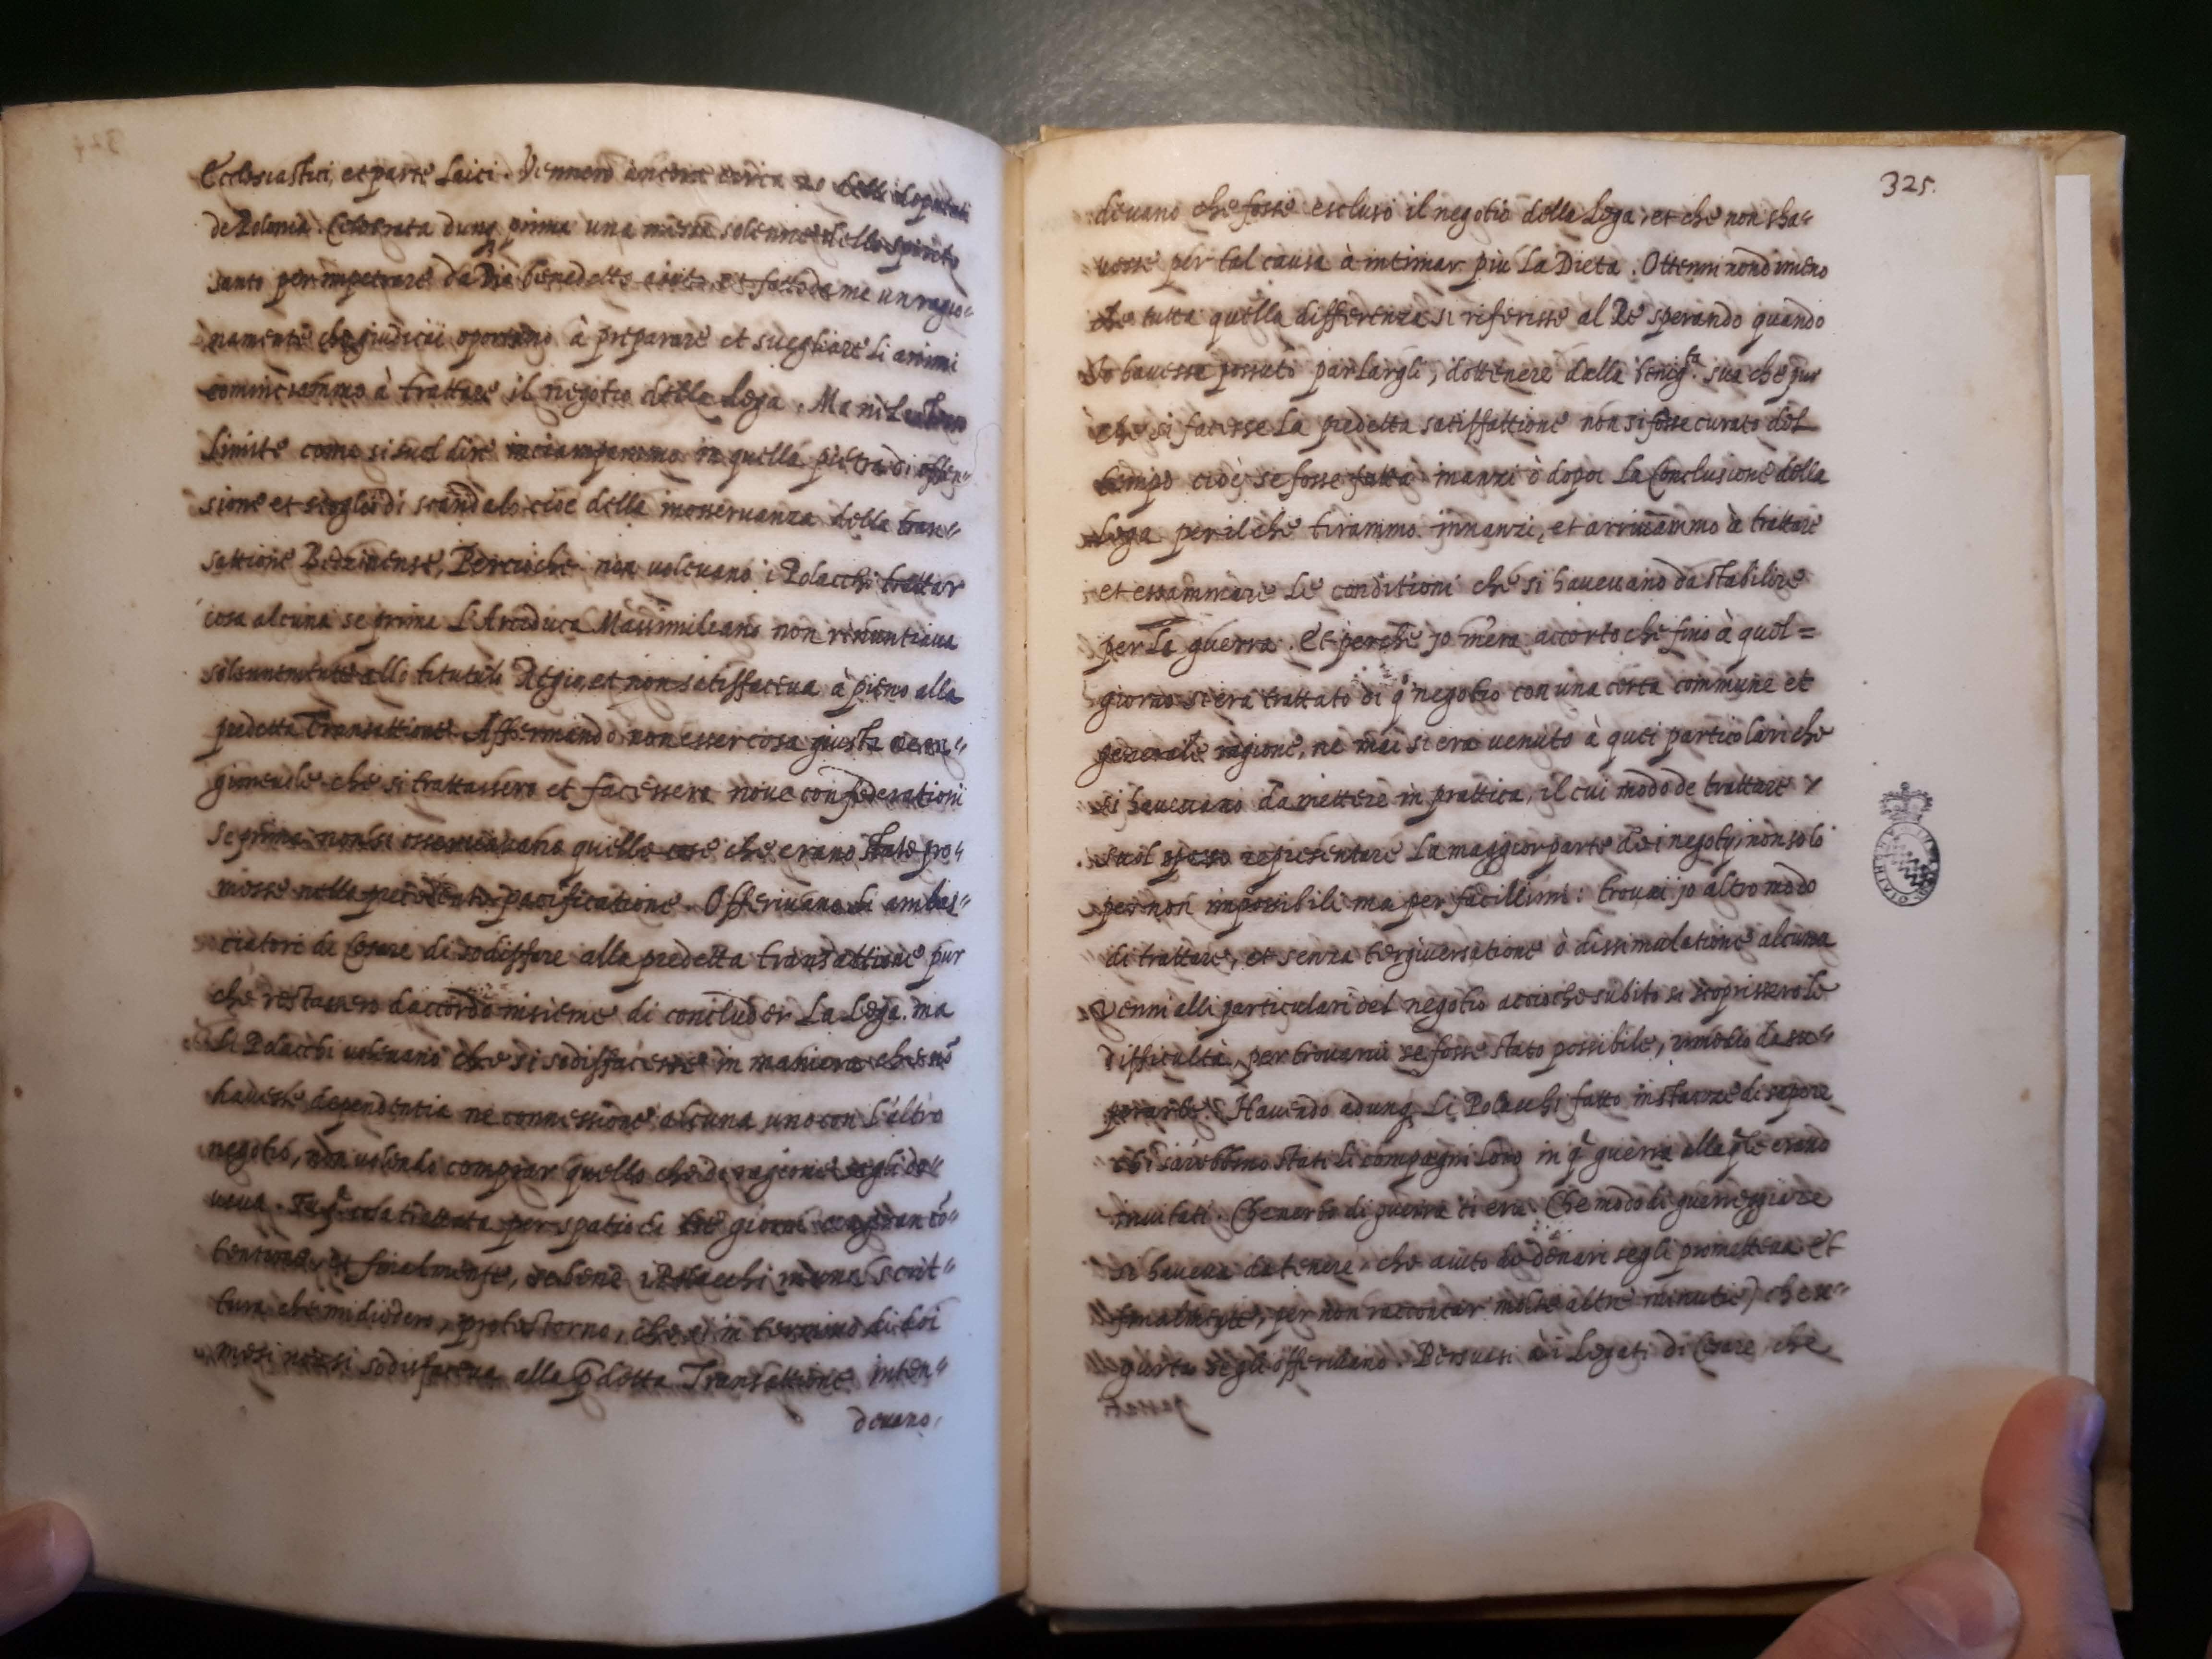 Ecclesiastici, et parte Laici. Vennero ancora circa 20 delli deputati
de Polonia. Celebrata dunq prima una messa solenne dello spirito
santo per impetrare da Dio benedetto aiuto, et fatto da me un ragio"
namento che giudicai oportuno à preparare et svegliare li animi
cominciammo à trattare il negotio della Lega. Ma nel
Limite come si suol dire inciampammo in quella pietra di offen"
sione et scoglio di scandalo cioe della inoseruanza della tran"
sattione Bedzinense, Percioche non uoleuano i Polacchi trattar
cosa alcuna se prima L'Arciduca Massimiliano non rinuntiaua
solennemente alli tituli Regio, et non satisfaceua à pieno alla
predetta Transattione. Affermando non esser cosa giusta ne
che si trattassero et facessero noue confederationi
se prima non si osseruauano quelle cose che erano state pro"
messe nella precedente pacificatione. Offeriuano li ambas"
ciatori de Cesare di sodisfare alla predetta transattione pur
che restassero d'accordo insieme di concluder La Lega. ma
li Polacchi uoleuano che si sodisfacesse in maniera che nō
hauesse dependentia ne connessione alcuna uno con l'altro
negotio, non uolendo comprar quello che di ragione segli do"
ueua. Fu q cosa trattata per spatio di tre giorni con gran cō"
tentione, et finalmente, sebene i Polacchi in una scrit"
tura che mi diedero, protestorno, che si in termino di doi
mesi non si sodisfaceua alla pdetta Transattione inten"
deuano,
325.
deuano che fosse escluso il negotio della Lega, et che non s'ha"
uesse per tal causa à intimar piu La Dieta. Ottenni nondimeno
che tutta quella differenza si riferisse al Re sperando quando
Io hauesse possuto parlargli, d'ottenere dalla benigta. sua che pur
che si facesse La predetta satisfattione non si fosse curato del
tempo cioè, se fosse fatta inanzi ò dopoi La Conclusione della
Lega per il che tirammo innanzi, et arriuammo à trattare
et essaminare Le conditioni che si haueuano da stabilire
per La guerra. Et perche jo m'era accorto che fino à quel=
giorno si era trattato di q° negotio con una certa commune et
generale ragione, ne mai si era uenuto à quei particolari che
si haueuano da mettere in prattica, il cui modo de trattare
suol spesso representare La maggior parte dei negotij, non solo
per non impossibili ma per facillimi: trouai jo altro modo
di trattare, et senza tergiuersatione ò dissimulatione alcuna
Venni alli particulari del negotio accioche subito si scoprissero le
difficultà, per trouarui se fosse stato possibile, il modo da su"
perarle. Hauendo adunq Li Polacchi fatto instanza di sapere
chi sarebbono stati li compagni loro in q guerra alla qle erano
inuitati. Che nerbo di guerra ci era. Che modo di guerreggiare
si haueua da tenere, che aiuto de denari segli prometteua et
finalmente, per non raccontar molte altre minutie) che se"
gurta segli offeriuano. Persuasi ài Legati di Cesare che